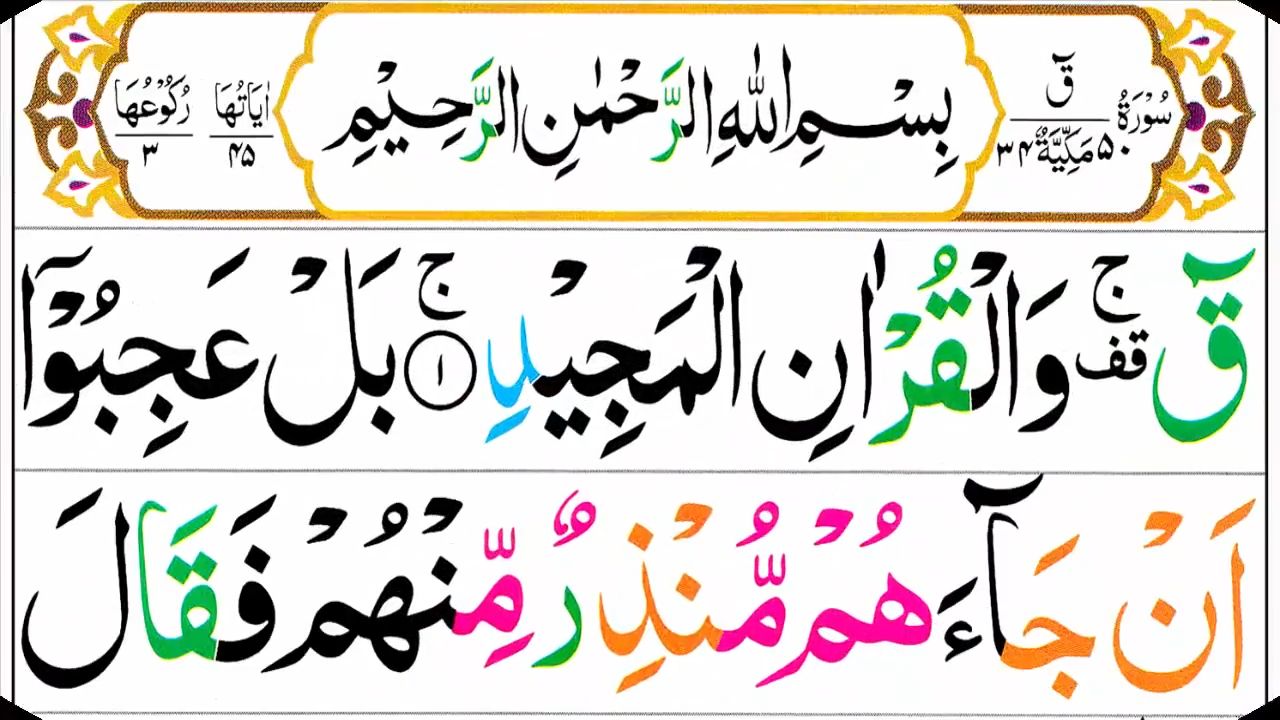 سُوْرَةُ قٓ ۵۰ مَكِّيَّةٌ ۳۴
بِسْمِ اللّٰهِ الرَّحْمٰنِ الرَّحِيْمِ
اٰيَاتُهَا ۴۵ رُكُوْعُهَا ۳
قٓ ۚ قف وَالْقُرْاٰنِ الْمَجِيْدِ ۚ ۱ بَلْ عَجِبُوْۤا
اَنْ جَآءَهُمْ مُّنْذِرٌ مِّنْهُمْ فَقَالَ